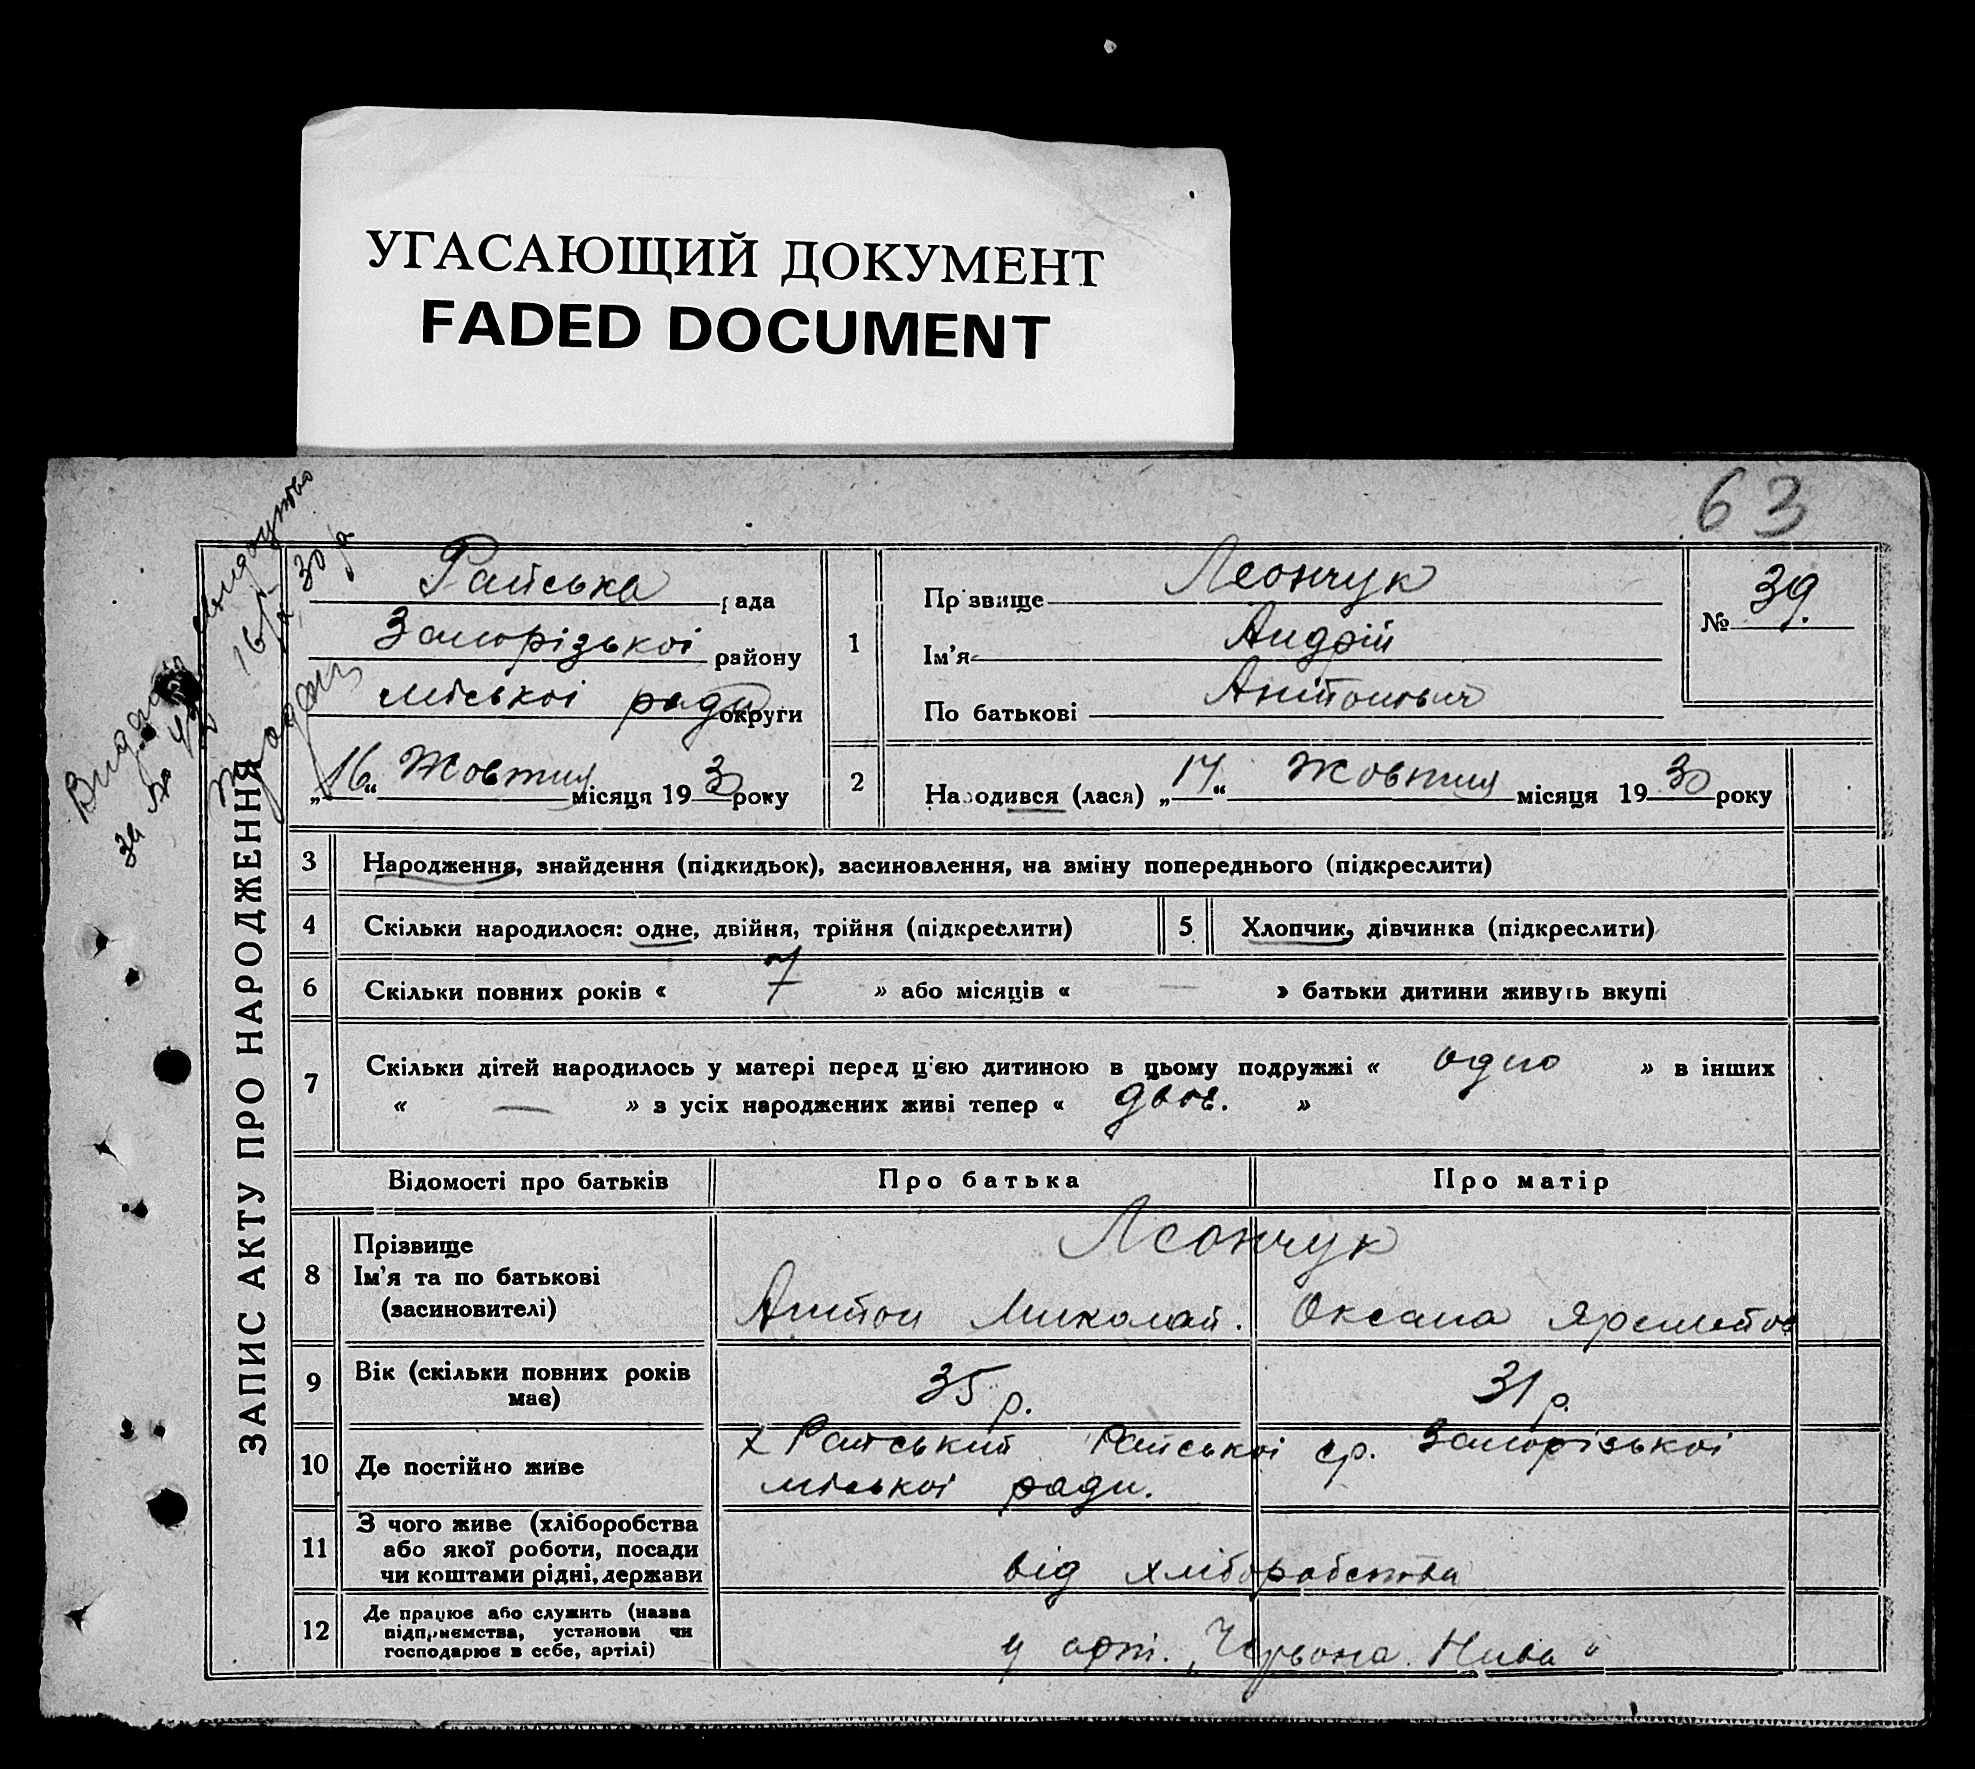 УГАСАЮЩИЙ ДОКУМЕНТ
FADED DOCUMENT
63
Видано свидоцтво
за № 16/X 30 р
ЗАПИС АКТУ ПРО НАРОДЖЕННЯ
Райська рада
Запорізької району
міської ради округи
„16“ Жовтня місяця 1930 року
1
Прізвище Леончук
Ім'я Андрій
По батькові Антонович
№ 39.
2
Народився (лася) „14“ Жовтня місяця 1930 року
3 Народження, знайдення (підкидьок), засиновлення, на зміну попереднього (підкреслити)
4 Скільки народилося: одне, двійня, трійня (підкреслити) 5 Хлопчик, дівчинка (підкреслити)
6 Скільки повних років « 7 » або місяців « — » батьки дитини живуть вкупі
7 Скільки дітей народилось у матері перед цією дитиною в цьому подружжі « одно » в інших
« — » з усіх народжених живі тепер « двоє. »
Відомості про батьків Про батька Про матір
8 Прізвище Леончук
Ім'я та по батькові
(засиновителі) Антон Миколай. Оксана Яремтов
9 Вік (скільки повних років має) 35 р. 31 р.
10 Де постійно живе х Райський Райської ср. Запорізької
міської ради.
11 З чого живе (хліборобства
або якої роботи, посади
чи коштами рідні, держави від хліборобства
12 Де працює або служить (назва
підприємства, установи чи
господарює в себе, артілі) у арт. „Червона Нива“